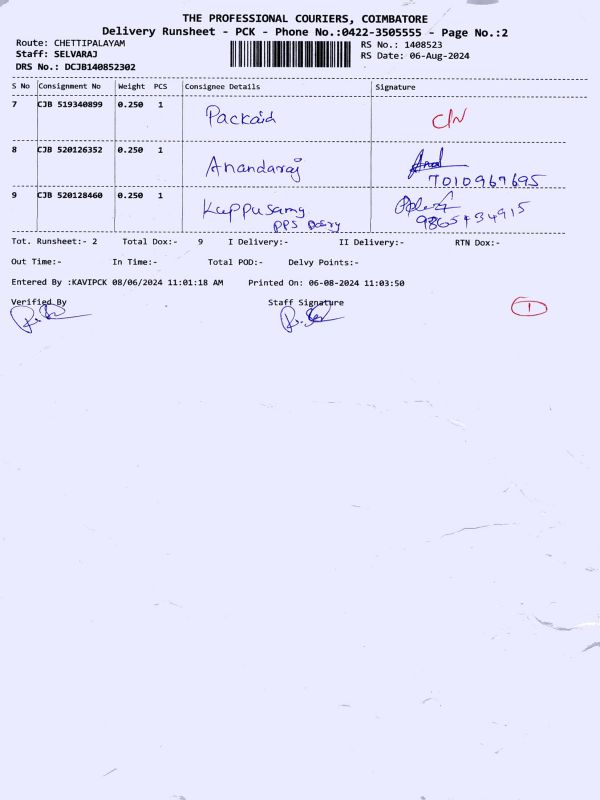 THE PROFESSIONAL COURIERS, COIMBATORE
Delivery Runsheet - PCK - Phone No.:0422-3505555 - Page No.:2
Route: CHETTIPALAYAM
RS No.: 1408523
Staff: SELVARAJ
RS Date: 06-Aug-2024
DRS No.: DCJB140852302
S No Consignment No Weight PCS Consignee Details Signature
7 CJB 519340899 0.250 1 Packaid C/N
8 CJB 520126352 0.250 1 Anandaraj
7010967695
9 CJB 520128460 0.250 1 Kuppusamy
PPS
Tot. Runsheet:- 2 Total Dox:- 9 I Delivery:- II Delivery:- RTN Dox:-
Out Time:- In Time:- Total POD:- Delvy Points:-
Entered By :KAVIPCK 08/06/2024 11:01:18 AM Printed On: 06-08-2024 11:03:50
Verified By Staff Signature
1